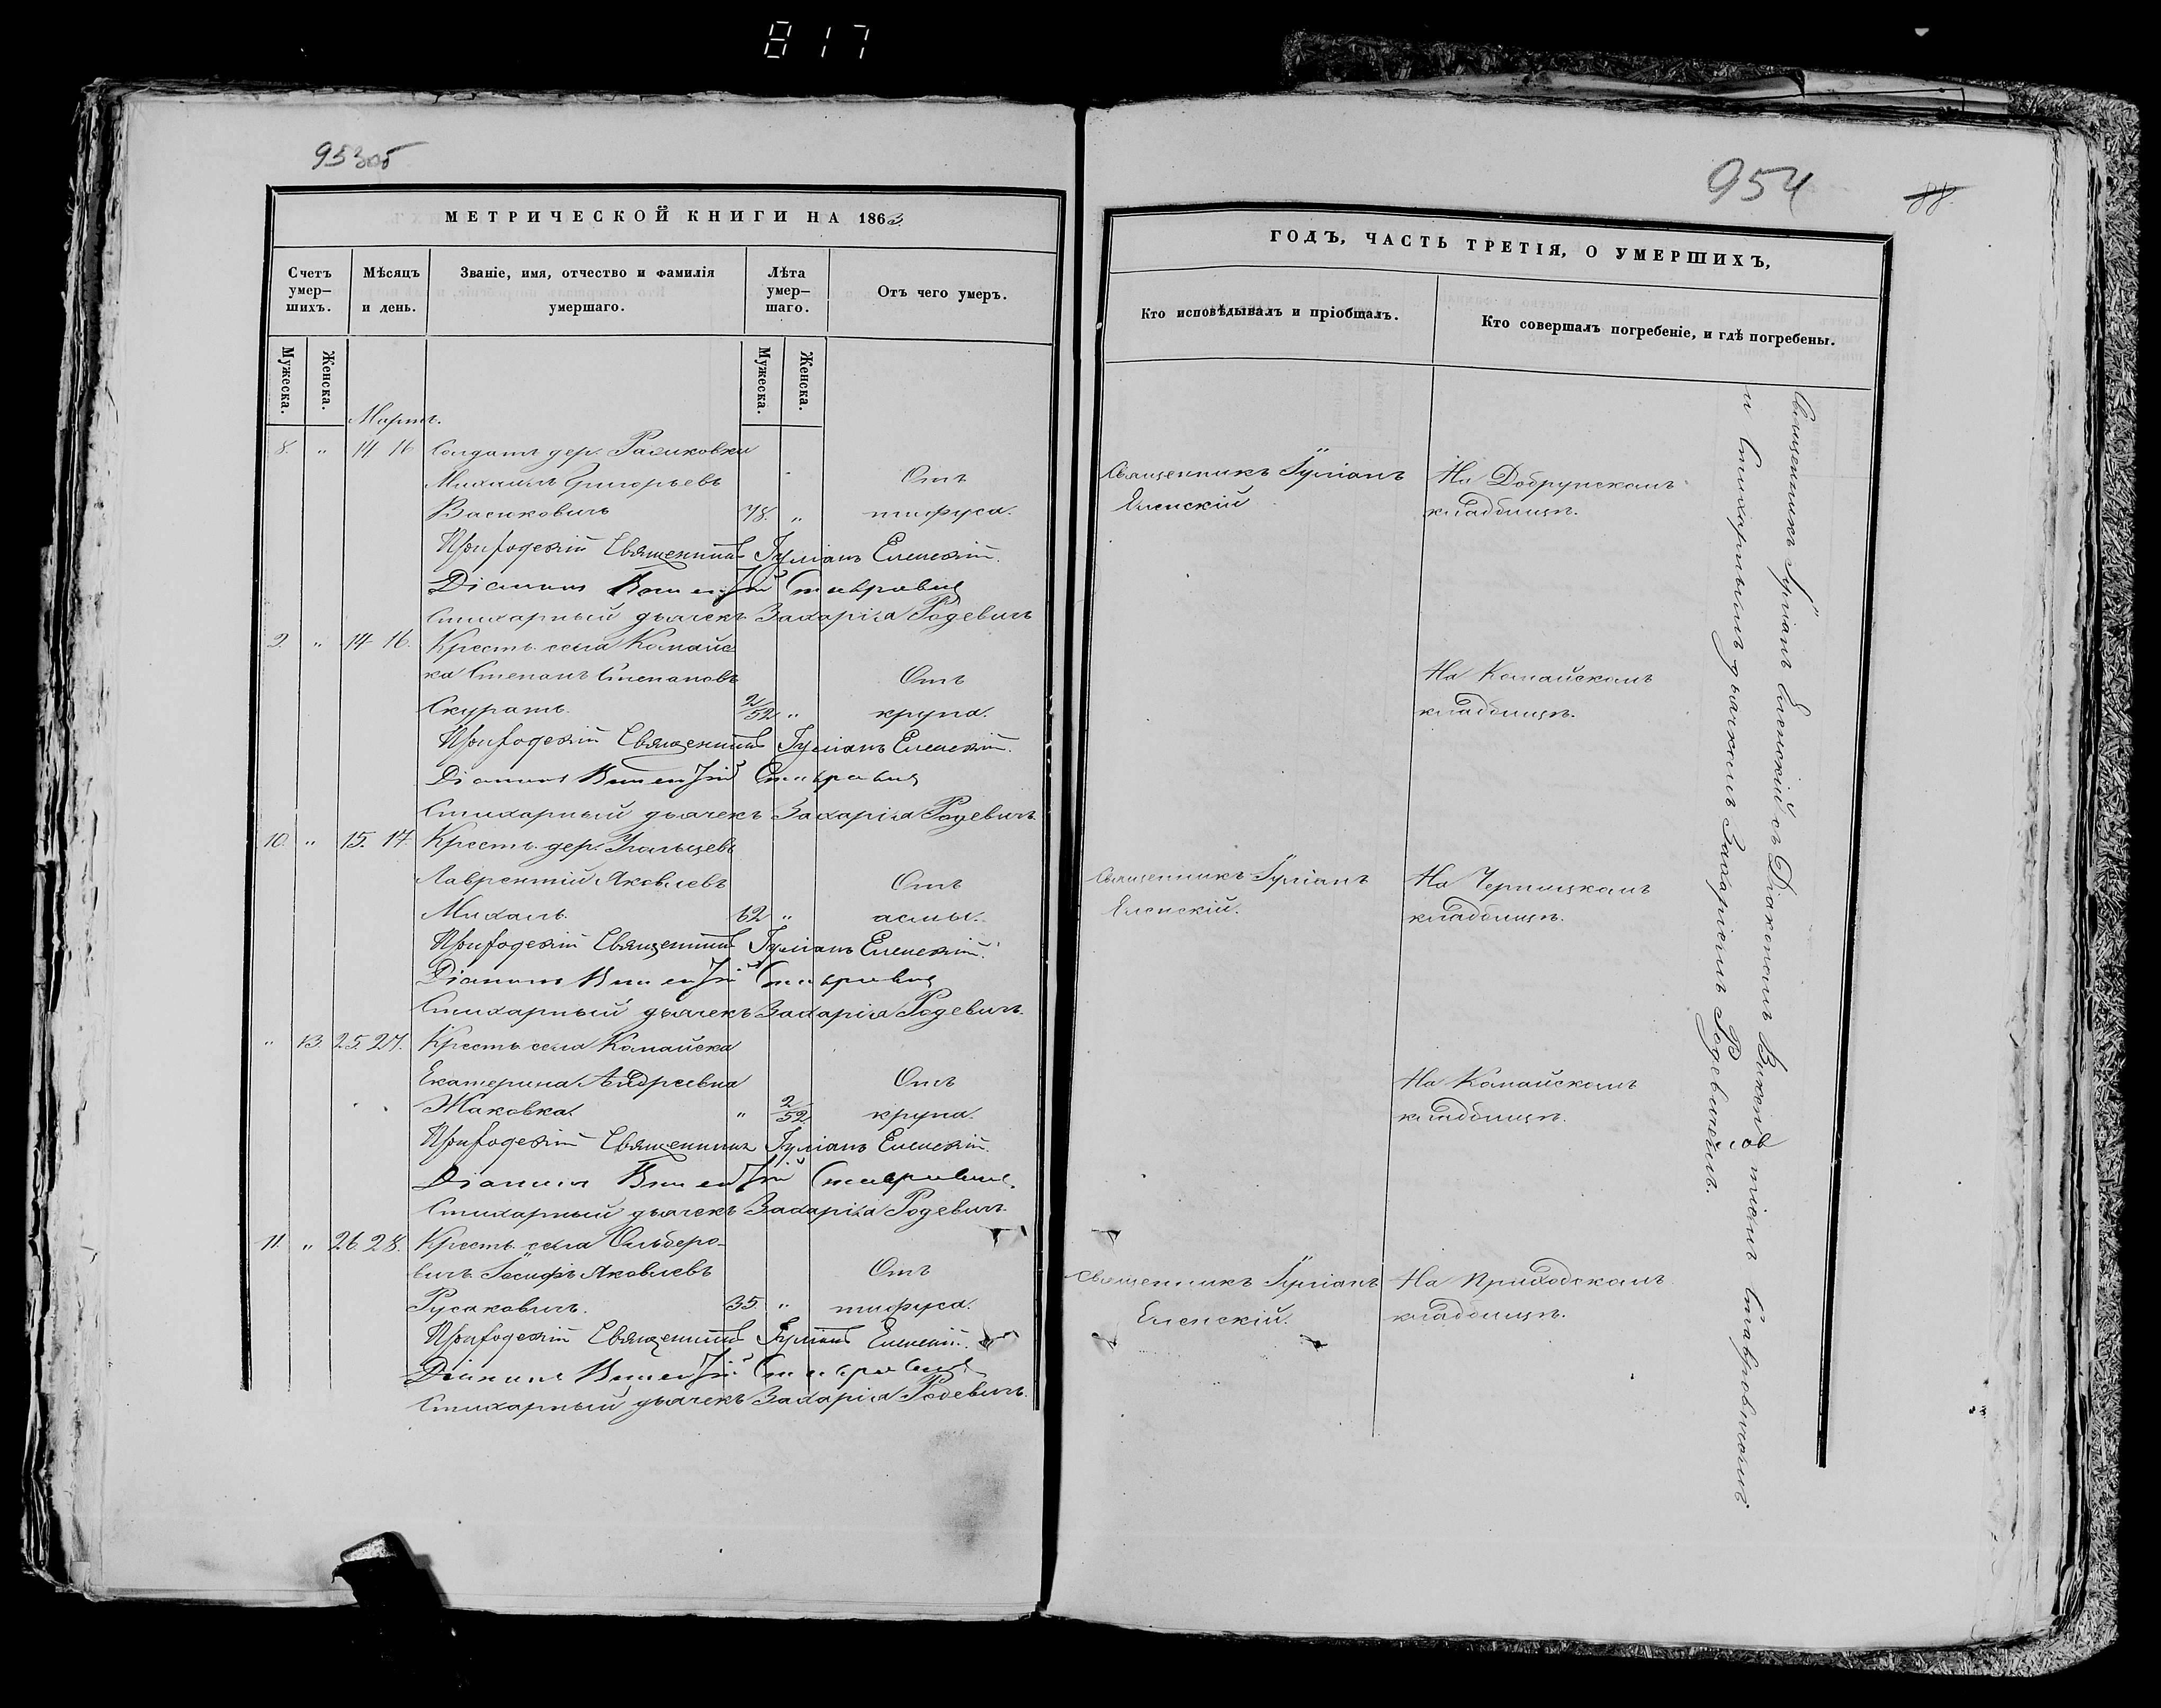 817
953об
МЕТРИЧЕСКОЙ КНИГИ НА 1863.
Счетъ умер–шихъ.
Мѣсяцъ и день.
Званіе, имя, отчество и фамилія умершаго.
Лѣта умер–шаго.
Отъ чего умеръ.
Мужеска.
Женска.
Мужеска.
Женска.
Мартъ.
8. " 14 16 Солдатъ дер.
Михаилъ Григорьевъ Отъ
Васюковичъ 78. " тифуса.
Приходскій Священникъ Іуліанъ Еленскій.
Діаконъ Викентій Ставровичъ
Стихарный дьячекъ Захарія Родевичъ
9. " 14 16. Крест. села Комайс
ка Степанъ Степановъ Отъ
Скуратъ. 2/52 " крупа.
Приходскій Священникъ Іуліанъ Еленскій.
Діаконъ Викентій Ставровичъ
Стихарный дьячекъ Захарія Родевичъ
10. " 15. 17 Крест. дер.
Лаврентій Яковлевъ Отъ
Михаль. 62 " асмы.
Приходскій Священникъ Іуліанъ Еленскій.
Діаконъ Викентій Ставровичъ
Стихарный дьячекъ Захарія Родевичъ.
" 13. 25. 27. Крест. села Комайска
Екатерина Андреевна Отъ
Жаковка. " 2/52 крупа.
Приходскій Священникъ Іуліанъ Еленскій.
Діаконъ Викентій Ставровичъ.
Стихарный дьячекъ Захарія Родевичъ.
11. " 26. 28. Крест. села Ольберо–
вичъ Іосифъ Яковлевъ Отъ
Русаковичъ. 35. " тифуса.
Приходскій Священникъ Іуліанъ Еленскій.
Діаконъ Викентій Ставровичъ
Стихарный дьячекъ Захарія Родевичъ.
954
88.
ГОДЪ, ЧАСТЬ ТРЕТІЯ, О УМЕРШИХЪ,
Кто исповѣдывалъ и пріобщалъ.
Кто совершалъ погребеніе, и гдѣ погребены.
Священникъ Іуліанъ На Добрунскомъ
Еленскій кладбищѣ.
На Комайскомъ
кладбищѣ.
Священникъ Іуліанъ На Черницкомъ
Еленскій. кладбищѣ.
На Комайскомъ
кладбищѣ.
Священникъ Іуліанъ На Приходскомъ
Еленскій. кладбищѣ.
Священникъ Іуліанъ Еленскій съ Діакономъ Викентіемъ Ставровичомъ
и Стихарнымъ дьячкомъ Захаріемъ Родевичемъ.